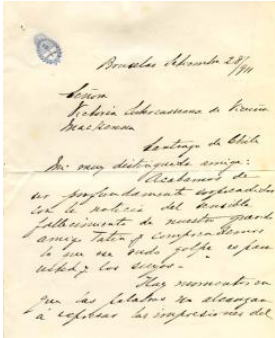 Bruselas Setiembre 28/911
Señora
Victoria Subercaseaux de Vicuña
Mackenna
Santiago de Chile
Mi muy distinguida amiga:
Acabamos de
ser profundamente sorprendidos
con la noticia del sensible
fallecimiento de nuestro grande
amigo y comprendemos
lo que ese rudo golpe es para
usted y los suyos.-
Hay momentos en
que las palabras no alcanzan
á expresar las impresiones del